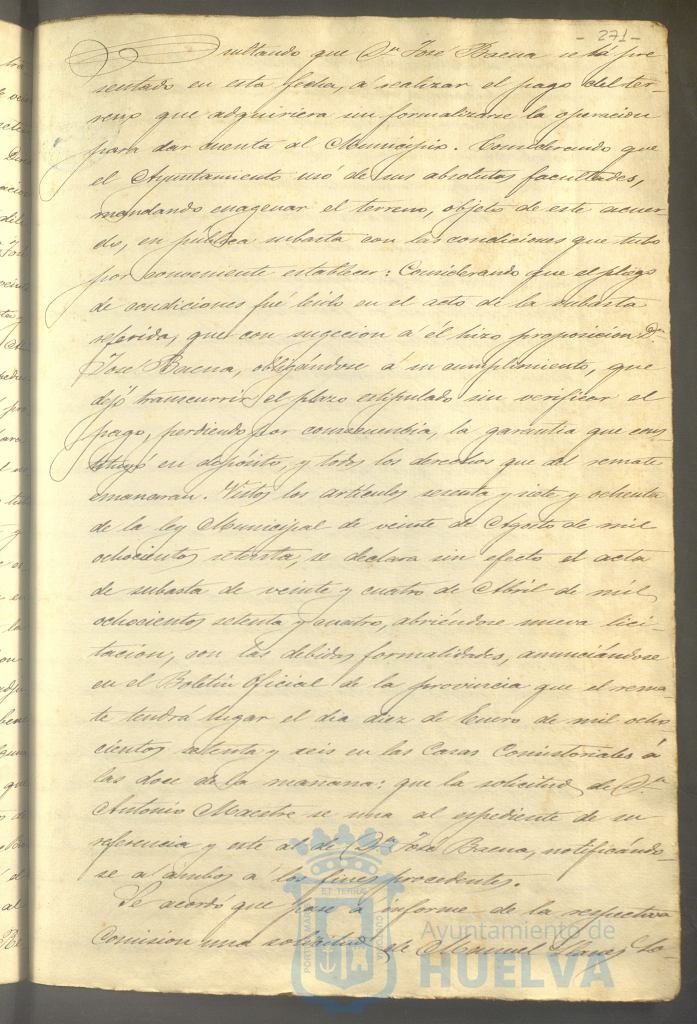 - 271 -
sultando que Dn José Baena se há pre
sentado en esta fecha, á realizar el pago del ter-
reno que adquiriera sin formalizarse la operacion
para dar cuenta al Municipio. Considerando que
el Ayuntamiento usó de sus absolutas facultades,
mandando enagenar el terreno, objeto de este acuer-
do, en publica subasta con las condiciones que tubo
por conveniente establecer: Considerando que el pliego
de condiciones fué leido en el acto de la subasta
referida, que con sugecion á él hizo proposicion Dn
José Baena, obligándose á su cumplimiento, que
dejó transcurrir el plazo estipulado sin verificar el
pago, perdiendo por consecuencia, la garantia que cons
tituyó en depósito, y todos los derechos que del remate
emanaran. Vistos los artículos sesenta y siete y ochenta
de la ley Municipal de veinte de Agosto de mil
ochocientos setenta, se declara sin efecto el acta
de subasta de veinte y cuatro de Abril de mil
ochocientos setenta y cuatro, abriéndose nueva lici-
tacion, con las debidas formalidades, anunciándose
en el Boletin Oficial de la provincia que el rema
te tendrá lugar el dia diez de Enero de mil ocho
cientos setenta y seis en las Casas Consistoriales á
las doce de la mañana: que la solicitud de Dn
Antonio Maestre se una al espediente de su
referencia y este al de Dn José Baena, notificándo-
se á ambos á los fines procedentes.
Se acordó que pase á informe de la respectiva
Comision una solicitud de Manuel
Ayuntamiento de
HUELVA